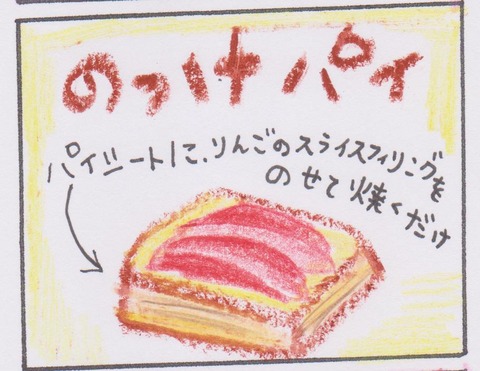 のっけパイ
パイシートに、りんごのスライスフィリングを
のせて焼くだけ